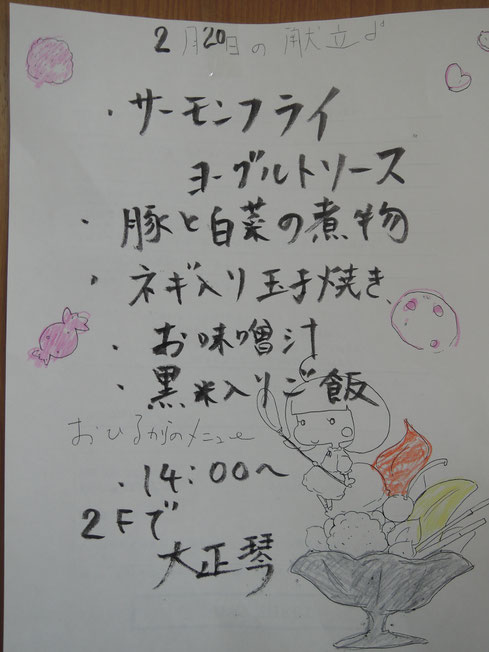 2月20日の献立♪
・サーモンフライ
ヨーグルトソース
・豚と白菜の煮物
・ネギ入り玉子焼き
・お味噌汁
・黒米入りご飯
おひるからのメニュー
・14:00～
2Fで
大正琴